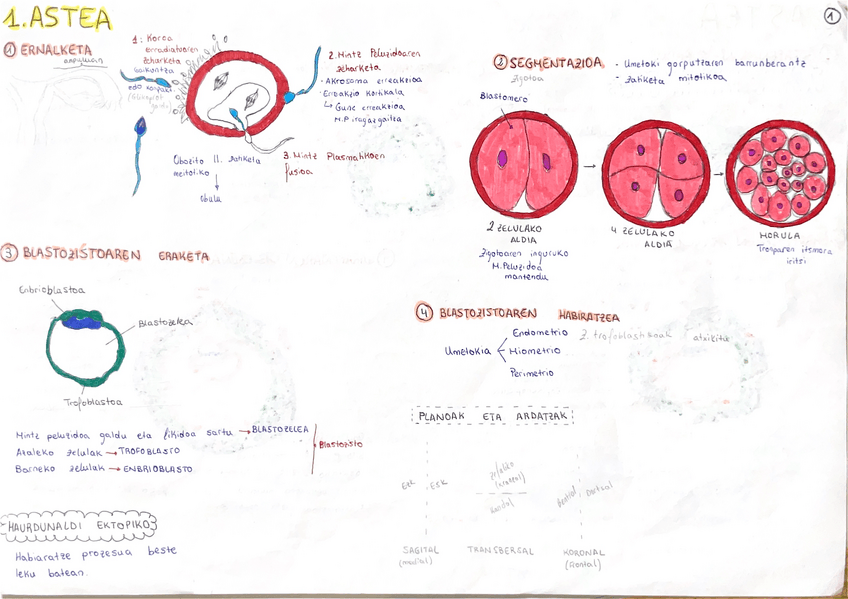 1. ASTEA
1
1 ERNALKETA
anpuluan
1: Koroa
erradiatuaren
zeharketa
2. Mintz Peluzidoaren
zeharketa
· Akrosoma erreakzioa
· Erreakzio kortikala
↳ Gune erreakzioa
M.P iragazgaitza
3. Mintz Plasmatikoen
fusioa
Obozito II. zatiketa
meitotiko
↓
obulu
2 SEGMENTAZIOA
Zigotoa
· Umetoki gorputzaren barrunberantz
· Zatiketa mitotikoa
Blastomero
2 ZELULAKO
ALDIA
Zigotoaren inguruko
M. Peluzidoa
mantendu
4 ZELULAKO
ALDIA
MORULA
Tronparen itsmora
iritsi
3 BLASTOZISTOAREN ERAKETA
Enbrioblastoa
Blastozelea
Trofoblastoa
Mintz peluzidoa galdu eta likidoa sartu → BLASTOZELEA
Azaleko zelulak → TROFOBLASTO
Barneko zelulak → ENBRIOBLASTO
Blastozisto
HAURDUNALDI EKTOPIKO
Habiaratze prozesua beste
leku batean.
4 BLASTOZISTOAREN HABIRATZEA
Umetokia
Endometrio
Miometrio
Perimetrio
Z. trofoblastikoak atxikita
PLANOAK ETA ARDATZAK
Ezk
Esk
(kraneal)
Kaudal
Bentral
Dortsal
SAGITAL
(medial)
TRANSBERSAL
KORONAL
(frontal)